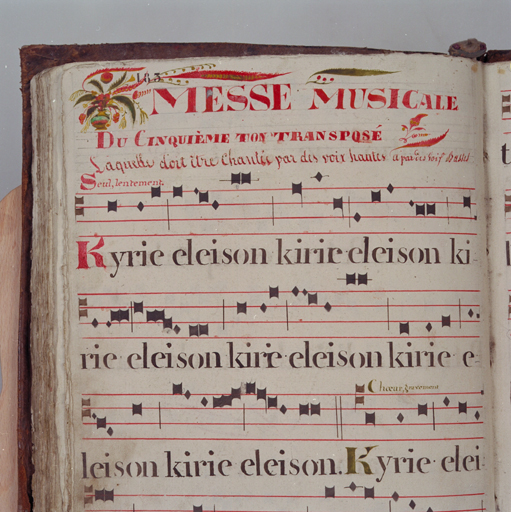 183
MESSE MUSICALE
DU CINQUIÈME TON TRANSPOSÉ
Laquelle doit être chantée par des voix hautes et par des voix Basses
Seul, lentement.
Kyrie eleison kirie eleison ki-
rie eleison kirie eleison kirie e-
Chœur, gravement
leison kirie eleison. Kyrie elei-
t